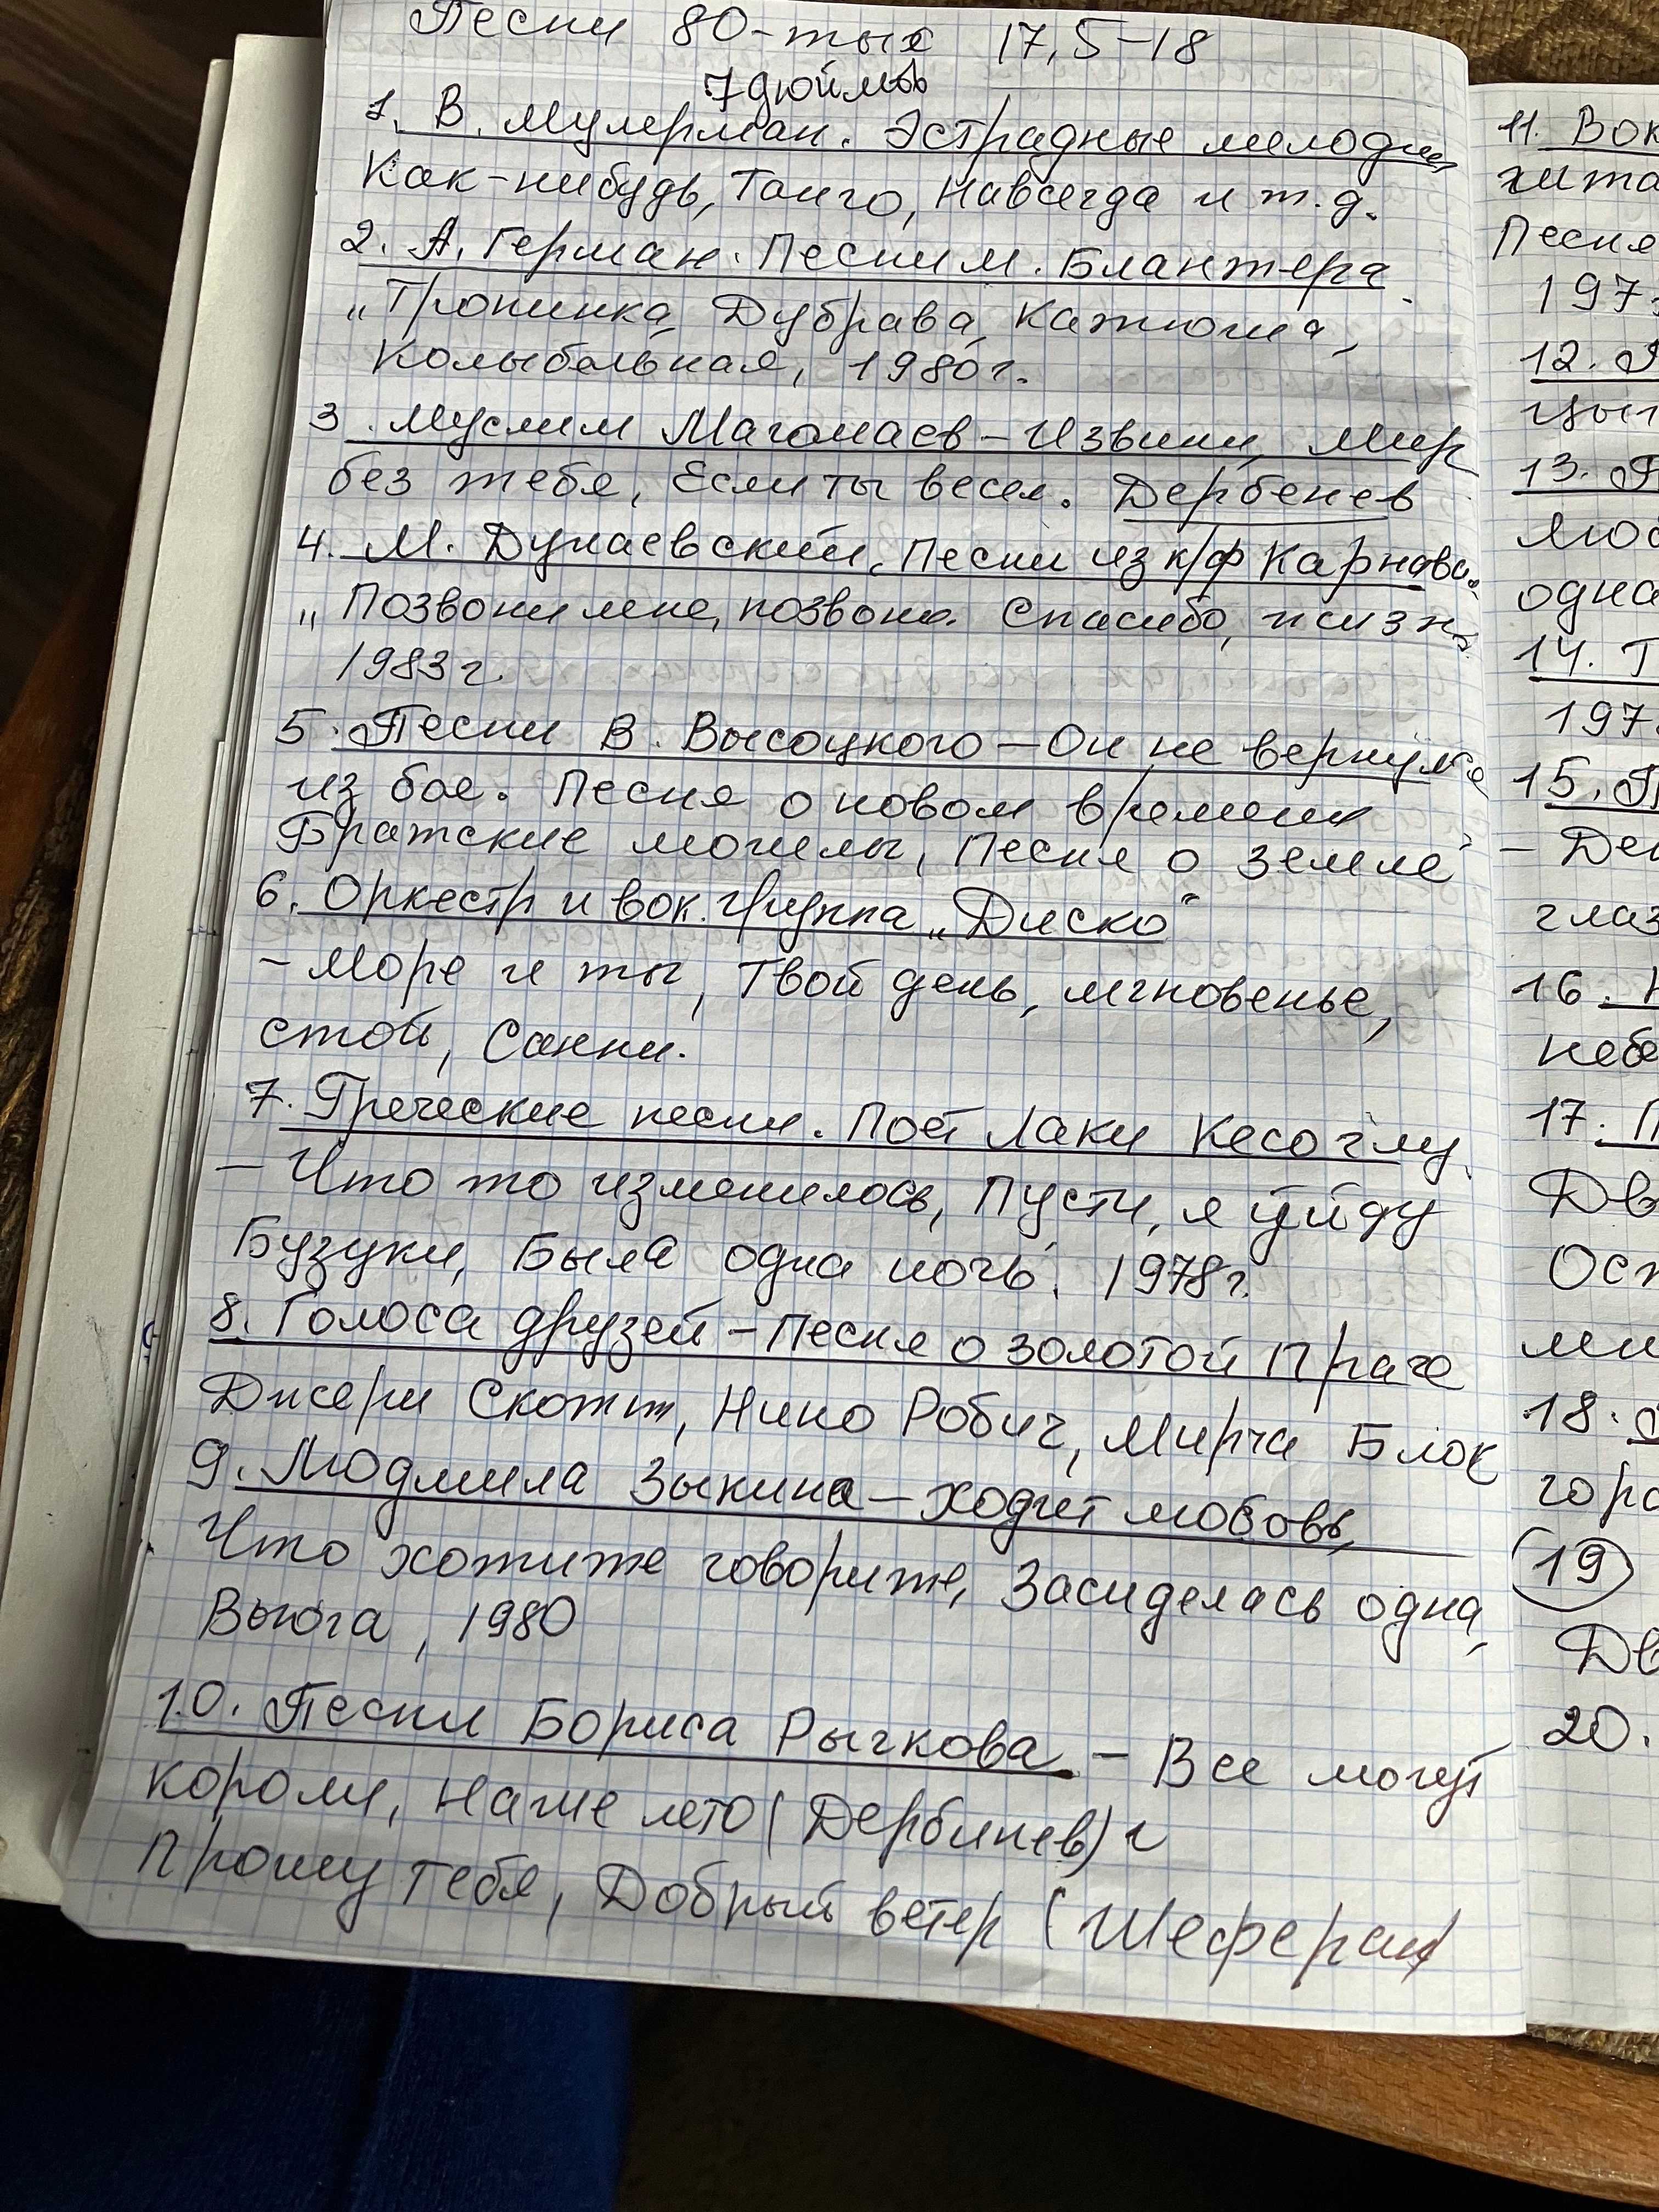 Песни 80-тых 17,5-18
7 дюймов
1. В. Мулерман. Эстрадные мелодии
Как-нибудь, Танго, Навсегда и т.д.
2. А. Герман. Песни М. Блантера
„Тропинка, Дубрава, Катюша,
Колыбельная, 1980г.
3. Муслим Магомаев - Извини, Мир
без тебя, Если ты весел. Дербенев
4. М. Дунаевский. Песни из к/ф Карнавал
„Позвони мне, позвони. Спасибо, жизнь.
1983г.
5. Песни В. Высоцкого - Он не вернулся
из боя. Песня о новом времени
Братские могилы, Песня о земле"
6. Оркестр и вок. группа „Диско"
- Море и ты, Твой день, мгновенье,
стой, Санни.
7. Греческие песни. Поёт Лаки Кесоглу.
- Что то изменилось, Пусти, я уйду
Бузуки, Была одна ночь. 1978г.
8. Голоса друзей - Песня о золотой Праге
Джери Скотт, Нино Робич, Мирча Блок
9. Людмила Зыкина - Ходит любовь,
Что хотите говорите, Засиделась одна,
Вьюга, 1980
10. Песни Бориса Рычкова - Все могут
короли, Наше лето (Дербинев) и
Прошу тебя, Добрый ветер (Шеферан)
11. Вок
хита
Песня
197
12.
цыг
13.
одна
14. Т
197
15. П
- Ден
глаз
16.
небе
17. П
Дв
Ост
ми
18.
горо
19
Дв
20.